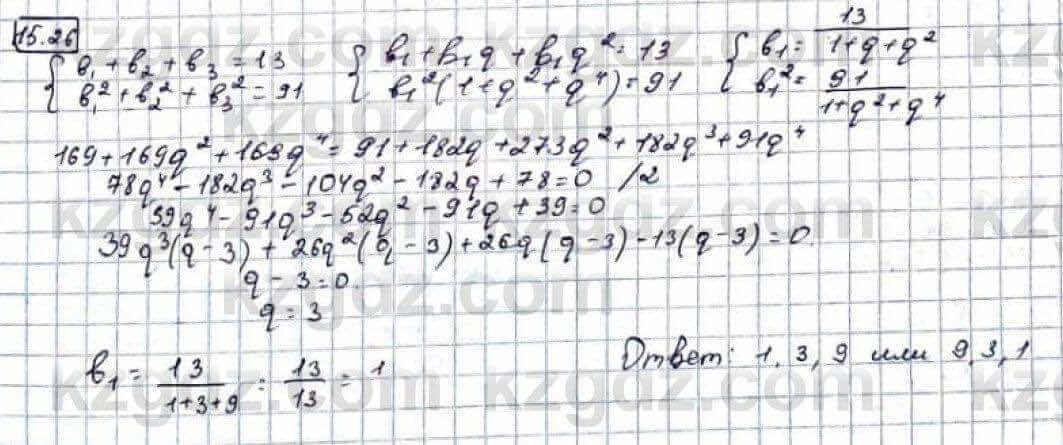 15.26
{ b₁ + b₂ + b₃ = 13 { b₁ + b₁q + b₁q² = 13 { b₁ = 13/(1+q+q²)
{ b₁² + b₂² + b₃² = 91 { b₁²(1+q²+q⁴) = 91 { b₁² = 91/(1+q²+q⁴)
169 + 169q² + 169q⁴ = 91 + 182q + 273q² + 182q³ + 91q⁴
78q⁴ - 182q³ - 104q² - 182q + 78 = 0 /2
39q⁴ - 91q³ - 52q² - 91q + 39 = 0
39q³(q - 3) + 26q²(q - 3) + 26q(q - 3) - 13(q - 3) = 0.
q - 3 = 0.
q = 3
b₁ = 13/(1+3+9) = 13/13 = 1
Ответ: 1, 3, 9 или 9, 3, 1
kzgdz.com